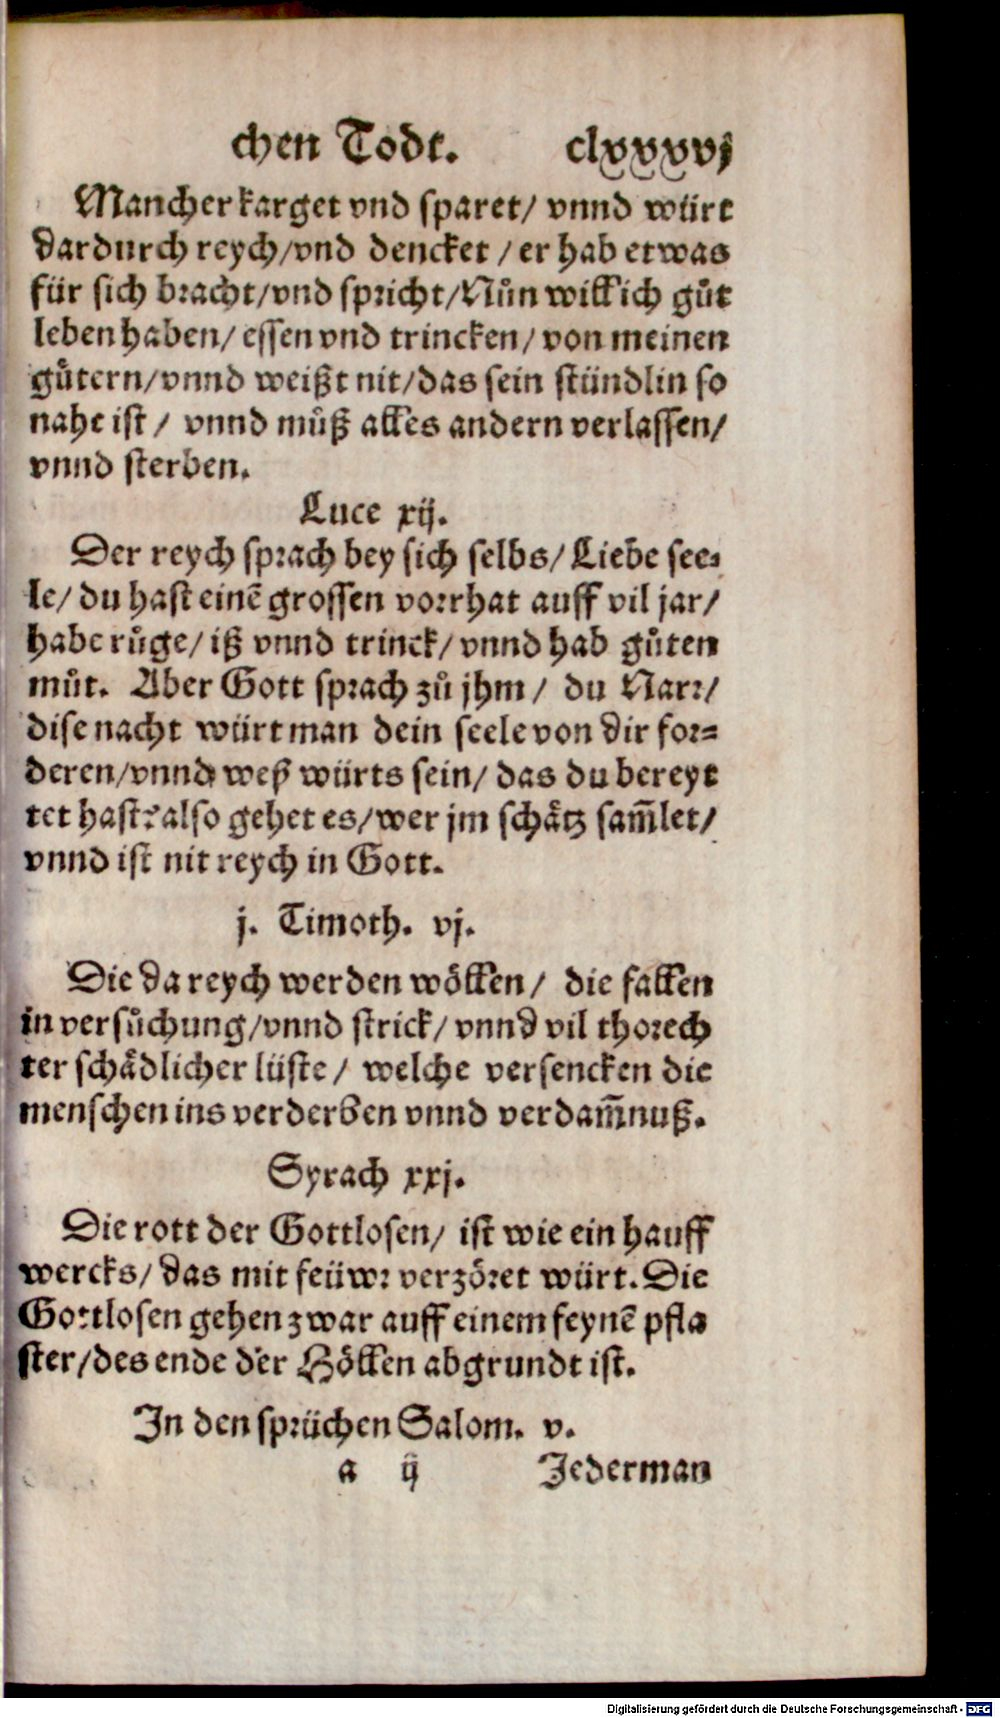 chen Todt. clxxxxvj
Mancher karget vnd sparet/ vnnd würt
dardurch reych/vnd dencket /er hab etwas
für sich bracht/vnd spricht/Nůn will ich gůt
leben haben/ essen vnd trincken/ von meinen
gůtern/vnnd weißt nit/das sein stündlin so
nahe ist / vnnd můß alles andern verlassen/
vnnd sterben.
Luce xij.
Der reych sprach bey sich selbs/ Liebe see-
le/ du hast einē grossen vorrhat auff vil jar/
habe růge/ iß vnnd trinck/ vnnd hab gůten
můt. Aber Gott sprach zů jhm / du Narr/
dise nacht würt man dein seele von dir for-
deren/vnnd weß würts sein/ das du bereyt
tet hast? also gehet es/wer jm schätz sam̄let/
vnnd ist nit reych in Gott.
j. Timoth. vj.
Die da reych werden wöllen/ die fallen
in versůchung/vnnd strick/ vnnd vil thorech
ter schädlicher lüste / welche versencken die
menschen ins verderben vnnd verdam̄nuß.
Syrach xxj.
Die rott der Gottlosen/ ist wie ein hauff
wercks/ das mit feüwr verzöret würt. Die
Gottlosen gehen zwar auff einem feynē pfla
ster/des ende der Höllen abgrundt ist.
In den sprüchen Salom. v.
a ij Jederman
Digitalisierung gefördert durch die Deutsche Forschungsgemeinschaft - DFG